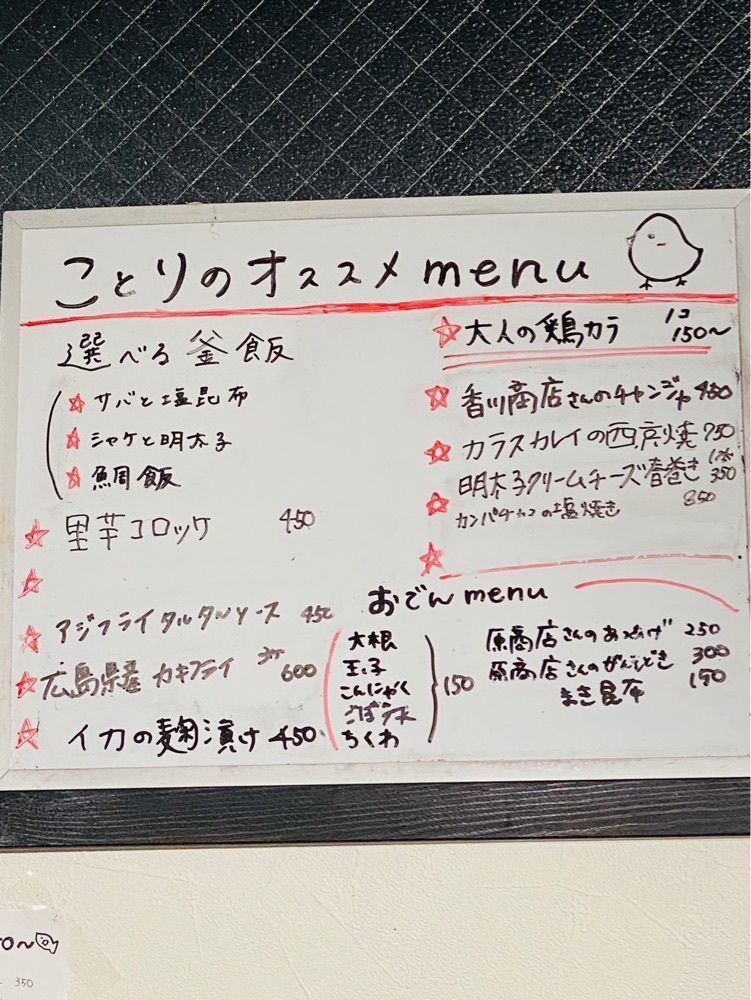 ことりのオススメmenu
選べる釜飯
サバと塩昆布
シャケと明太子
鯛飯
里芋コロッケ 450
アジフライタルタルソース 450
広島県産 カキフライ 3ケ 600
イカの麹漬け 450
大人の鶏カラ 1コ 150〜
香川商店さんのチャンジャ 480
カラスカレイの西京焼 750
明太子クリームチーズ春巻き 1本 350
カンパチカマの塩焼き 850
おでんmenu
大根
玉子
こんにゃく
ごぼう天
ちくわ
150
原商店さんのあつあげ 250
原商店さんのがんもどき 300
まき昆布 150
0〜
350